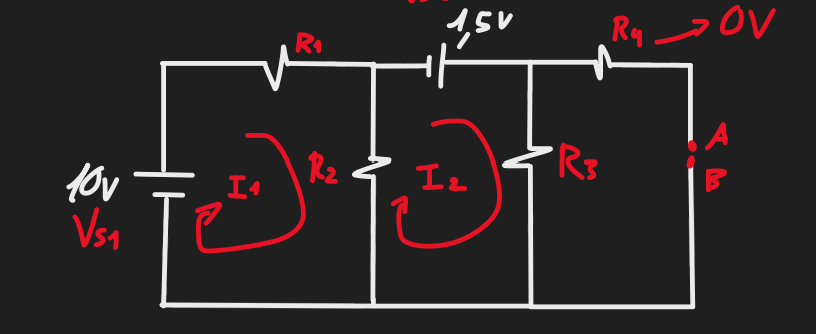 15V
R1
R4 → 0V
10V
VS1
I1
R2
I2
R3
A
B